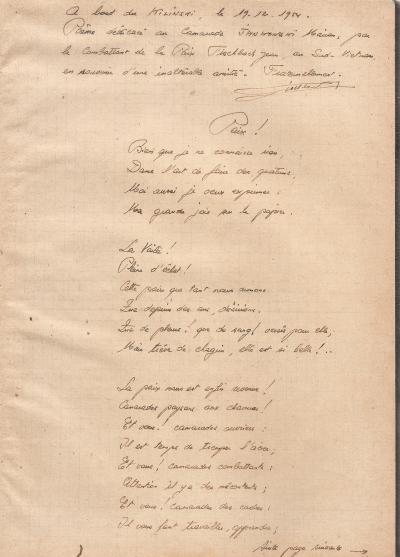 A bord du Kilinski, le 19.12.1954.
Poème dédicacé au Camarade Marian, par
le Combattant de la Paix Fischbach Jean, au Sud-Vietnam,
en souvenir d'une inaltérable amitié. Fraternellement.
Paix !
Bien que je ne connaisse rien,
Dans l'art de faire des quatrains,
Moi aussi je veux exprimer :
Ma grande joie sur le papier.
La Voilà !
Pleine d'éclat !
Cette paix que tant nous aimons
Que depuis des ans, désirions.
Que de pleurs ! que de sang ! versés pour elle,
Mais trève de chagrin, elle est si belle !..
La paix nous est enfin venue !
Camarades paysans aux charrues !
Et vous ! camarades ouvriers :
Il est temps de tremper l'acier,
Et vous ! camarades combattants :
Attention il y a des mécontents ;
Et vous ! camarades des cadres :
Il vous faut travailler, apprendre ;
Suite page suivante →